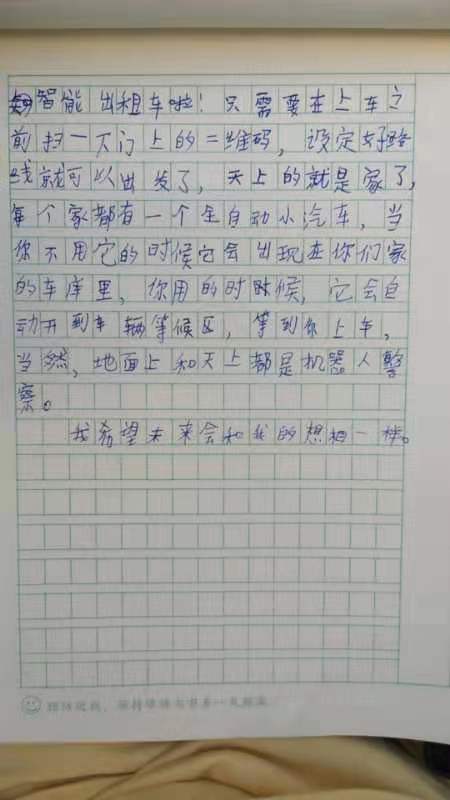 智能出租车啦！只需要在上车之
前扫一下门上的二维码，设定好路
线就可以出发了，天上的就是家了，
每个家都有一个全自动小汽车，当
你不用它的时候它会出现在你们家
的车库里，你用的时时候，它会自
动开到车辆等候区，等到你上车，
当然，地面上和天上都是机器人警
察。
我希望未来会和我的想相一样。